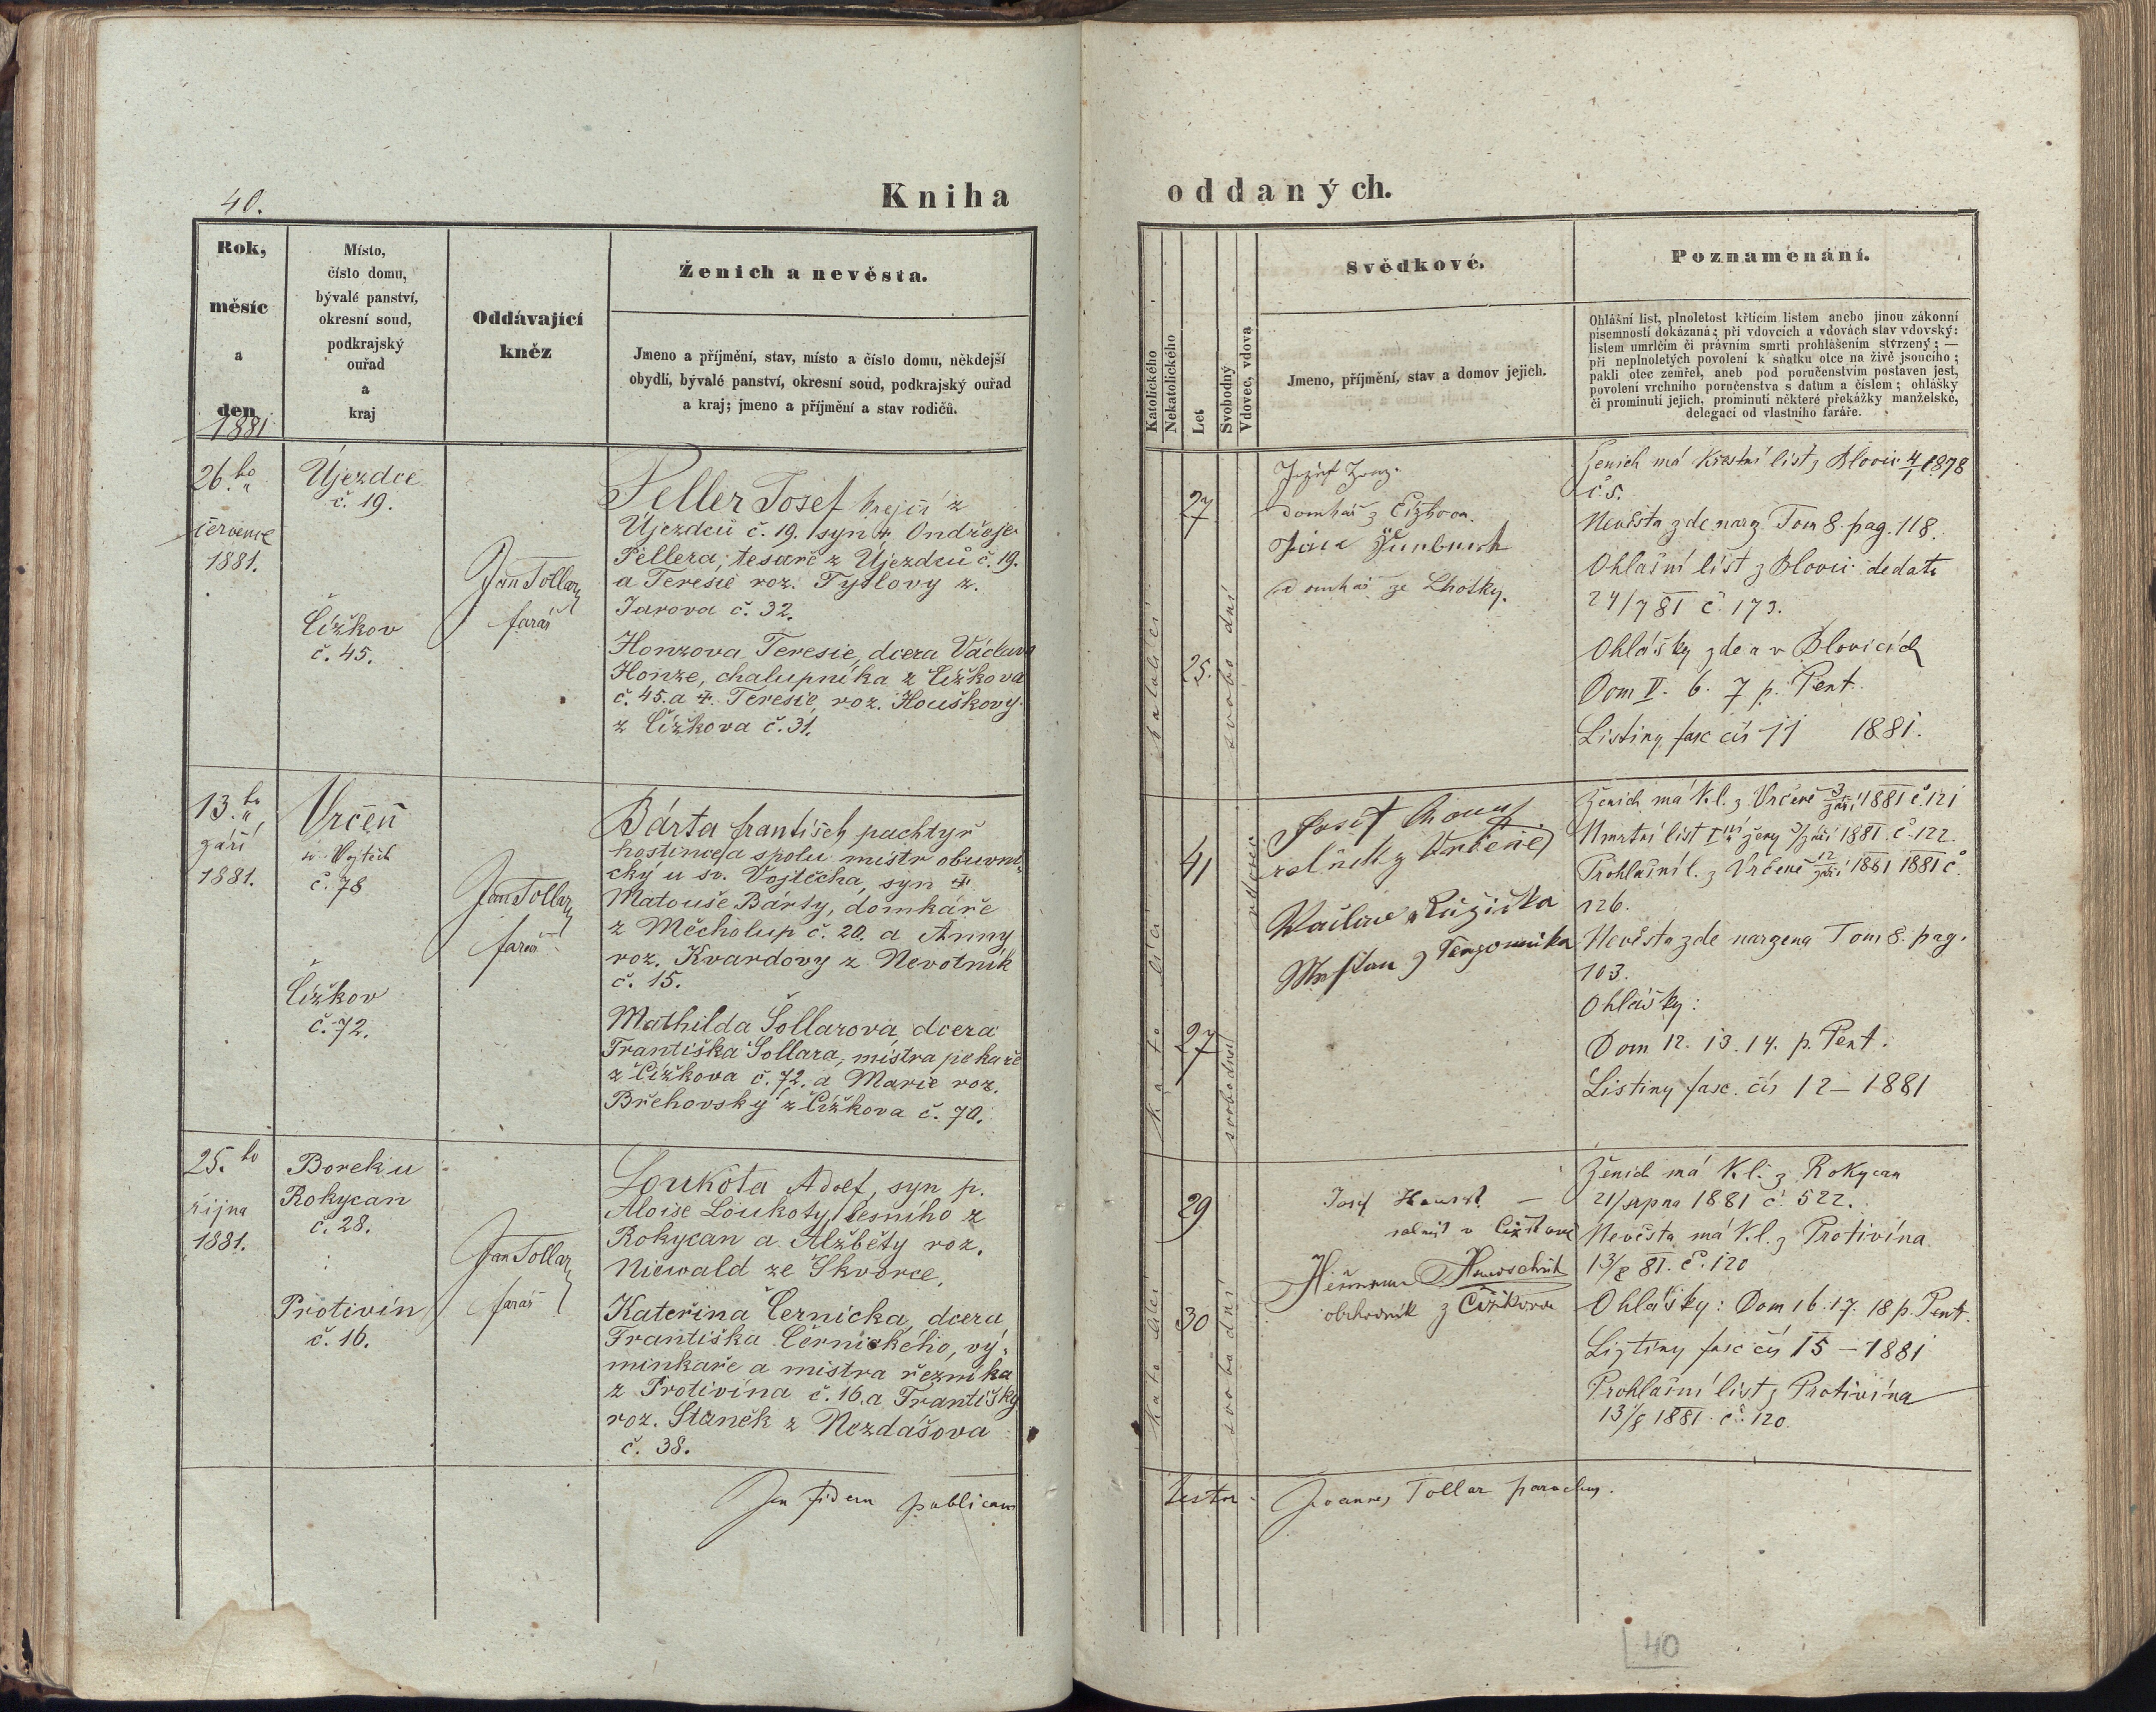 40.
Kniha
Rok,
měsíc
a
den
1881
Místo,
číslo domu,
bývalé panství,
okresní soud,
podkrajský
ouřad
a
kraj
Oddávající
kněz
Ženich a nevěsta.
Jmeno a příjmění, stav, místo a číslo domu, někdejší
obydlí, bývalé panství, okresní soud, podkrajský ouřad
a kraj; jmeno a příjmění a stav rodičů.
26.ho
července
1881.
Újezdce
č. 19.
Čížkov
č. 45.
Jan Tollar
farář
Peller Josef krejčí z
Újezdců č. 19. syn † Ondřeje
Pellera, tesaře z Újezdců č. 19.
a Teresie roz. Tyslovy z.
Jarova č. 32.
Honzova Teresie, dcera Václava
Honze, chalupníka z Čížkova
č. 45. a †. Teresie, roz. Houškovy
z Čížkova č. 31.
13.ho
září
1881.
Vrčeň
sv. Vojtěch
č. 78
Čížkov
č. 72.
Jan Tollar
farář
Bárta František pachtýř
hostince a spolu mistr obuvni-
cký u sv. Vojtěcha, syn †
Matouše Bárty, domkáře
z Měcholup č. 20. a Anny
roz. Kvardovy z Nevotník
č. 15.
Mathilda Šollarova, dcera
Františka Šollara, mistra pekaře
z Čížkova č. 72. a Marie roz.
Břehovský z Čížkova č. 70.
25.ho
října
1881.
Borek u
Rokycan
č. 28.
Protivín
č. 16.
Jan Tollar
farář
Loukota Adolf, syn p.
Aloise Loukoty, lesního z
Rokycan a Alžběty roz.
Niewald ze Škvorce.
Kateřina Černicka, dcera
Františka Černického, vý-
minkaře a mistra řezníka
z Protivína č. 16. a Františky
roz. Staněk z Nezdášova
č. 38.
In fidem publicam
oddaných.
Katolického
Nekatolického
Let
Svobodný
Vdovec, vdova
Svědkové.
Jmeno, příjmění, stav a domov jejich.
Poznamenání.
Ohlášní list, plnoletost křticím listem anebo jinou zákonní
písemností dokázaná; při vdovcích a vdovách stav vdovský:
listem umrlčím či právním smrti prohlášením stvrzený; —
při neplnoletých povolení k sňatku otce na živě jsoucího;
pakli otec zemřel, aneb pod poručenstvím postaven jest,
povolení vrchního poručenstva s datum a číslem; ohlášky
či prominutí jejich, prominutí některé překážky manželské,
delegací od vlastního faráře.
katoličtí
27
25.
svobodní
domkář z Čížkova
domkář ze Lhotky.
Ženich má Křestní list z Blovic 4/1 1878
č 5.
Nevěsta zde narz. Tom 8. pag. 118.
Ohlašní list z Blovic dedato
24/7 81 č. 173.
Ohlášky zde a v Blovicích
Dom V. 6. 7 p. Pent.
Listiny fasc čís 11 1881.
katoličtí
41
27
vdovec
svobodná
Josef
rolník z Vrčeně
Václav Růžička
Ženich má K.l. z Vrčeně 3/září 1881 č. 121
Umrtní list Ini ženy 3/září 1881. č. 122.
Prohlašní l. z Vrčeně 12/září 1881 1881 č.
126.
Nevěsta zde narzena Tom 8. pag.
103.
Ohlášky:
Dom 12. 13. 14. p. Pent.
Listiny fasc. čís 12 – 1881
katoličtí
29
30
svobodní
Josef
rolník v Čížkově
obchodník z Čížkova
Ženich má K.l. z Rokycan
21/srpna 1881 č. 522.
Nevěsta má K.l. z Protivína
13/8 81. č. 120
Ohlášky: Dom 16. 17. 18 p. Pent.
Listiny fasc čís 15 – 1881
Prohlašní list z Protivína
13/8 1881. č. 120.
Joannes Tollar parochus.
40